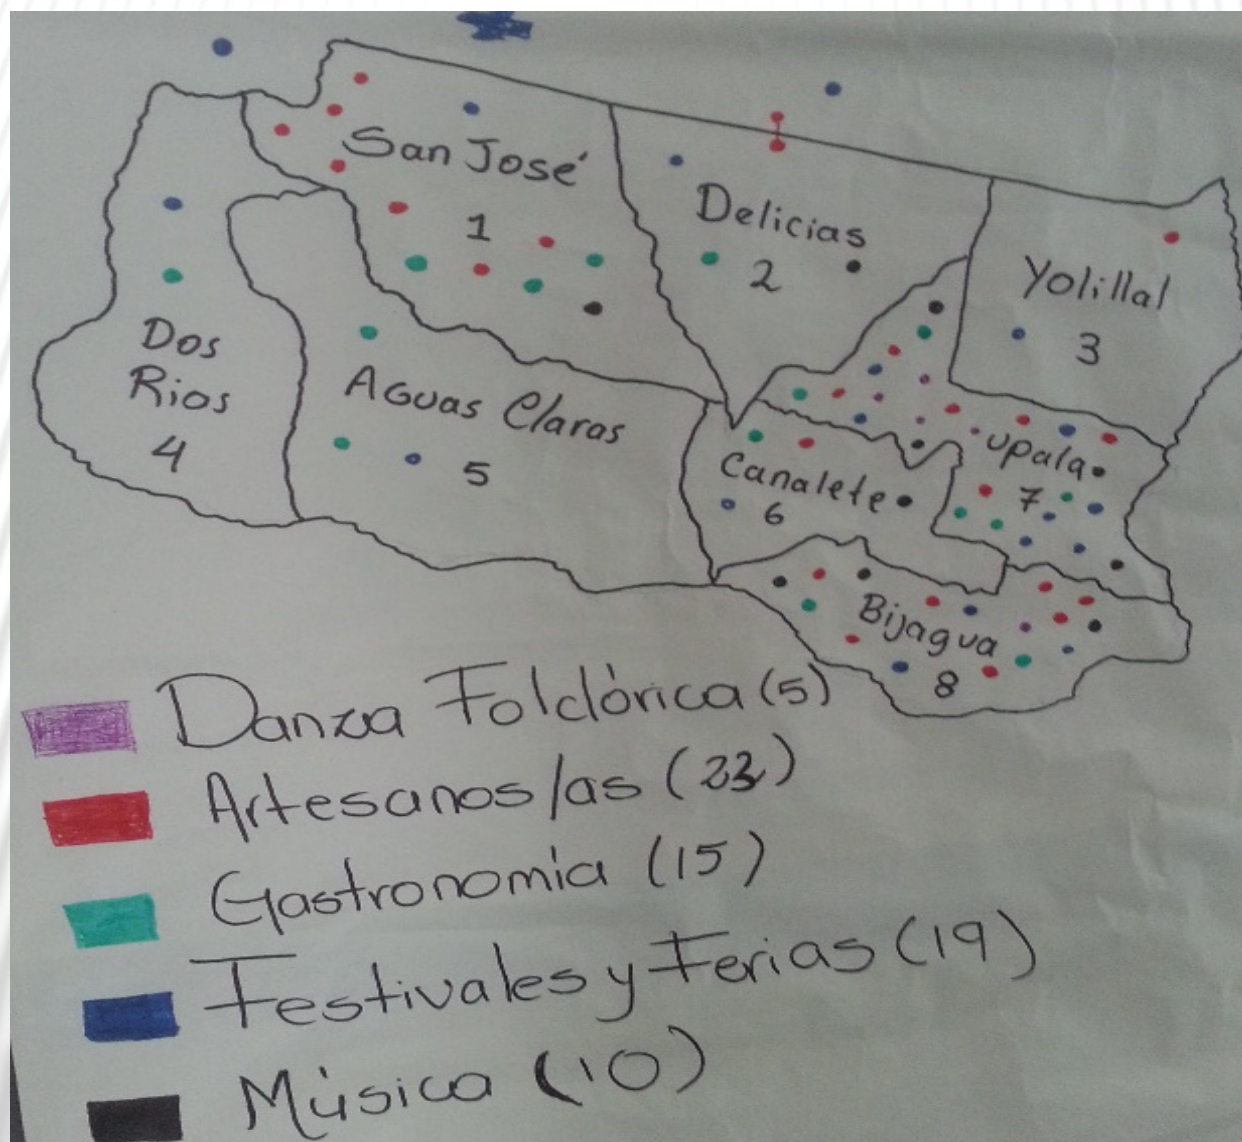 San José
1
Delicias
2
Yolillal
3
Dos
Rios
4
Aguas Claras
5
Canalete
6
Upala
7
Bijagua
8
Danza Folclórica (5)
Artesanos/as (23)
Gastronomía (15)
Festivales y Ferias (19)
Música (10)